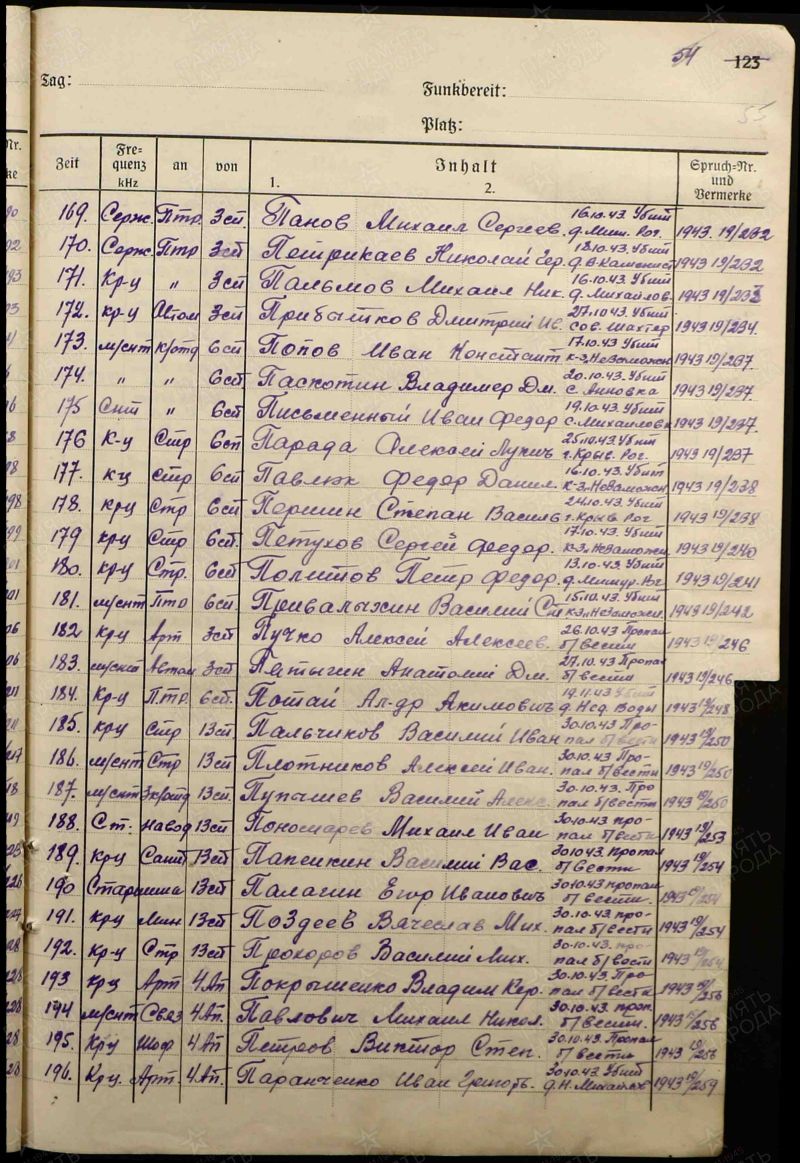 54 123
Tag:
Funkbereit:
55
Platz:
Zeit Fre=quenz kHz an von Inhalt 1. 2. Spruch=Nr. und Vermerke
169. Серж. Птр. 3сп Панов Михаил Сергеев. 16.10.43. Убит д. Миш. Рог. 1943. 19/232
170. Серж. Птр 3сп Петрикаев Николай Гр. 18.10.43. Убит д.В-Каменист 1943 19/232
171. Кр-ц " 3сп Пальмов Михаил Ник. 16.10.43. Убит д. Михайлов. 1943 19/233
172. кр-ц Автом 3сп Прибытков Дмитрий Ив. 27.10.43 Убит Сов. Шахтер 1943 19/234.
173. м/снт К/отд 6сп Попов Иван Констант 17.10.43. Убит к-з,Незаможн. 1943 19/237.
174. " " 6сп. Паскотин Владимер Дм. 20.10.43. Убит с. Анновка 1943 19/237.
175 Снт " 6сп. Письменный Иван Федор 19.10.43 Убит с. Михайловк 1943 19/237.
176 К-ц Стр 6сп Парада Алексей Лукич 25.10.43. Убит г.Крыв. Рог. 1943 19/237
177. кц Стр 6сп. Павлюк Федор Данил. 16.10.43. Убит к-з,Незаможн 1943 19/238
178. крц Стр. 6сп Першин Степан Василь 24.10.43. Убит г.Крыв Рог 1943 19/238
179 кр-ц Стр 6сп. Петухов Сергей Федор. 17.10.43. Убит к-з.Незаможн. 1943 19/240
180. кр-ц Стр. 6сп. Политов Петр Федор. 13.10.43. Убит 1943 19/241
181. м/снт Птр 6сп. Привалыхин Василий Ст 15.10.43. Убит к-з.Незаможн. 1943 19/242
182 Кр-ц Арт 3сп Пучко Алексей Алексеев. 26.10.43 Пропал б/вести 1943 19/246
183. м/снт Автом 3сп Пятыгин Анатолий Дм. 27.10.43 Пропал б/вести 1943 19/246
184. Кр-ц П.тр 6сп. Потай Ал-др Акимович 19.11.43 Убит д. Нед. Воды 1943 19/248
185. крц Стр 13сп Пальчиков Василий Иван 30.10.43. Пропал б/вести 1943 19/250
186. м/снт Стр 13сп Плотников Алексей Иван. 30.10.43. Пропал б/вести 1943 19/250
187. м/снт 13сп. Пупышев Василий Алекс. 30.10.43. Пропал б/вести 1943 19/250
188. Ст. Навод 13сп Пономарев Михаил Иван 30.10.43 пропал б/вести 1943 19/253
189. Крц Санит 13сп Папенкин Василий Вас. 30.10.43. Пропал б/вести 1943 19/254
190 Старшина 13сп Палагин Егор Иванович 30.10.43 пропал б/вести. 1943 19/254
191. крц Мин 13сп Поздеев Вячеслав Мих. 30.10.43. пропал б/вести 1943 19/254
192. Кр-ц Стр 13сп Прохоров Василий Мих. 30.10.43. пропал б/вести 1943 19/254
193 крц Арт 4.Ап Покрышенко Владим Кер. 30.10.43. Пропал б/вести 1943 19/256
194 м/снт Связ 4.Ап. Павлович Михаил Никол. 30.10.43. проп. б/вести. 1943 19/256
195. Крц Шоф 4.Ап Петров Виктор Степ. 30.10.43. Пропал б/вести 1943 19/256
196. Крц. Арт. 4.Ап. Паранченко Иван Григорь. 30.10.43. Убит д.Н. 1943 19/259